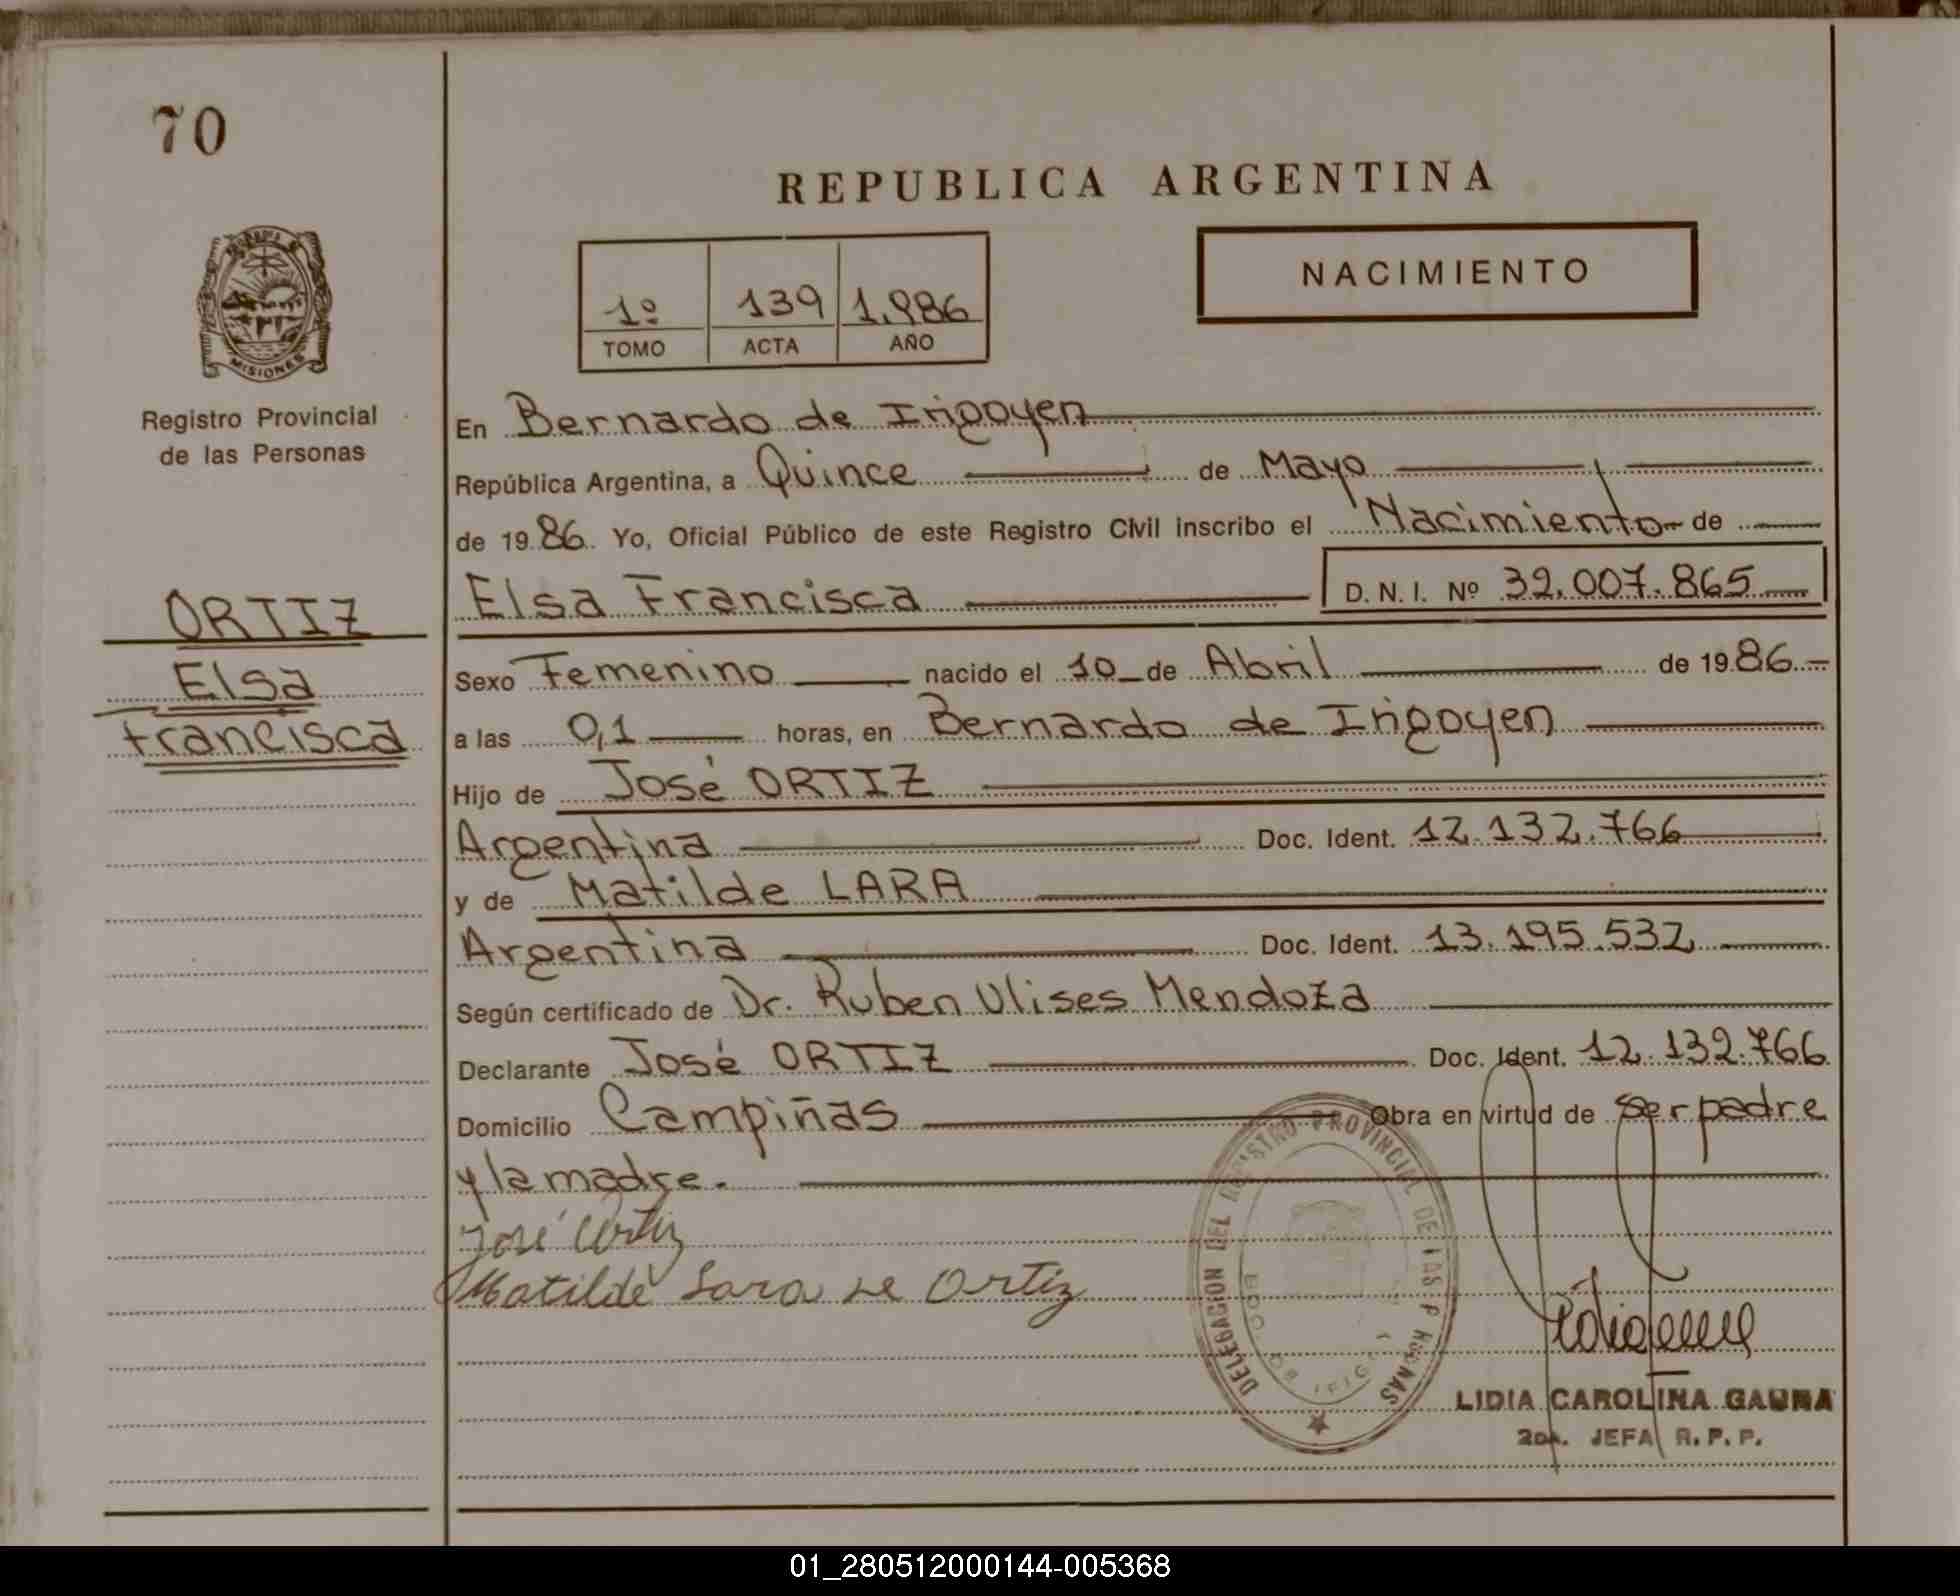 70
REPUBLICA ARGENTINA
NACIMIENTO
1º 139 1.986
TOMO ACTA AÑO
MISIONES
Registro Provincial
de las Personas
ORTIZ
Elsa
Francisca
En Bernardo de Irigoyen
República Argentina, a Quince de Mayo
de 1986. Yo, Oficial Público de este Registro Civil inscribo el Nacimiento de
Elsa Francisca D.N.I. Nº 32.007.865
Sexo Femenino nacido el 10 de Abril de 1986.
a las 0,1 horas, en Bernardo de Irigoyen
Hijo de José ORTIZ
Argentina Doc. Ident. 12.132.766
y de Matilde LARA
Argentina Doc. Ident. 13.195.532
Según certificado de Dr. Ruben Ulises Mendoza
Declarante José ORTIZ Doc. Ident. 12.132.766
Domicilio Campiñas Obra en virtud de ser padre
y la madre.
José Ortiz
Matilde Lara de Ortiz
DELEGACION DEL REGISTRO PROVINCIAL DE LAS PERSONAS
BDO. DE IRIGOYEN
LIDIA CAROLINA GAUNA
2da. JEFA R.P.P.
01_280512000144-005368